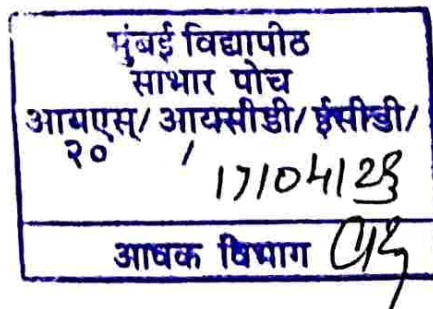 मुंबई विद्यापीठ
साभार पोच
आयएस्/ आयसीडी/ ईसीडी/
२० /
17/04/23
आवक विभाग